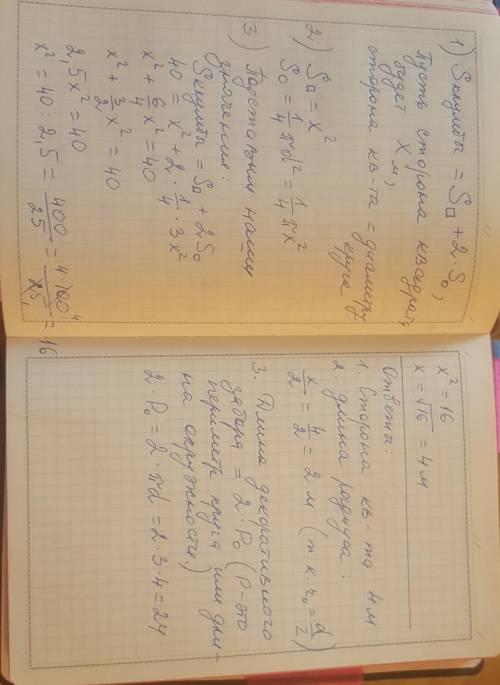 1) Sклумбы = S□ + 2·S₀,
Пусть сторона квадрата
будет x м,
сторона кв-та = диаметру
круга
2) S□ = x²
S₀ = 1/4 πd² = 1/4 πx²
3) Подставим наши
значения:
Sклумбы = S□ + 2S₀
40 = x² + 2 · 1/4 · 3x²
x² + 6/4 x² = 40
x² + 3/2 x² = 40
2,5x² = 40
x² = 40 : 2,5 = 400/25 = 4·100⁴/25₁ = 16
x² = 16
x = √16 = 4 м
Ответы:
1. Сторона кв-та 4м
2. длина радиуса:
x/2 = 4/2 = 2 м (т.к. r₀ = d/2)
3. Длина декоративного
забора = 2·P₀ (P-это
периметр круга или дли-
на окружности.)
2·P₀ = 2·πd = 2·3·4 = 24